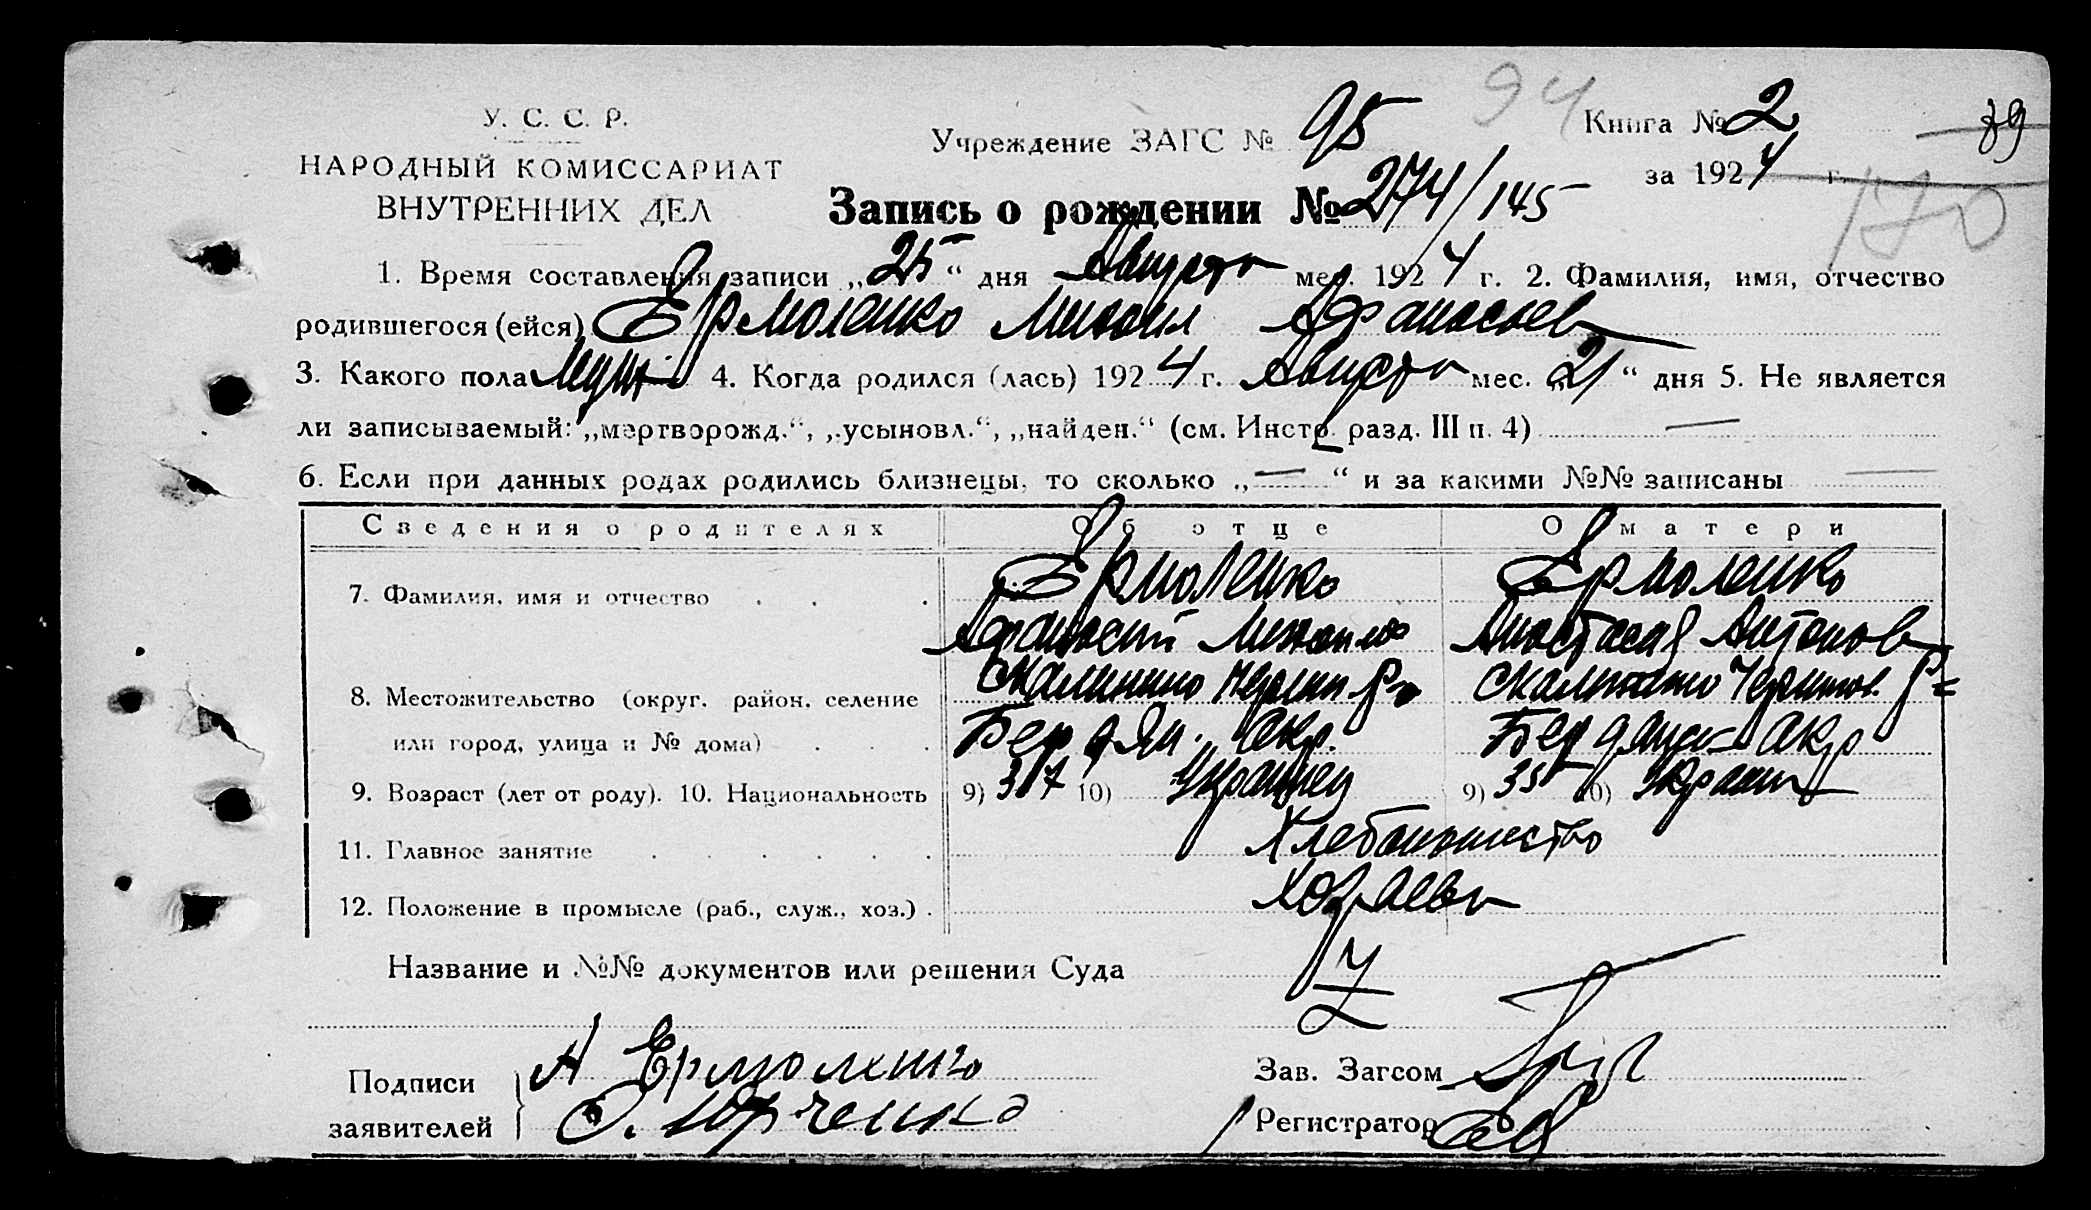 94
У. С. С. Р.
НАРОДНЫЙ КОМИССАРИАТ
ВНУТРЕННИХ ДЕЛ
Учреждение ЗАГС № 95
Книга № 2
89
за 1924 г.
170
Запись о рождении № 274/145
1. Время составления записи „25“ дня Августа мес. 1924 г. 2. Фамилия, имя, отчество
родившегося (ейся) Ермоленко Михаил Афанасьев
3. Какого пола Муж 4. Когда родился (лась) 1924 г. Августа мес. „21“ дня 5. Не является
ли записываемый: „мертворожд.“, „усыновл.“, „найден.“ (см. Инстр. разд. III п. 4) —
6. Если при данных родах родились близнецы, то сколько „—“ и за какими №№ записаны —
Сведения о родителях Об отце О матери
7. Фамилия, имя и отчество Ермоленко Ермоленко
Афанасий Михайлов Анастасия Антонов
8. Местожительство (округ, район, селение
или город, улица и № дома) Бердян. Окр. Бердянск Окр
9. Возраст (лет от роду). 10. Национальность 9) 37 10) Украинец 9) 35 10) Украин
11. Главное занятие Хлебопашество
12. Положение в промысле (раб., служ., хоз.) Хозяева
Название и №№ документов или решения Суда
Подписи
заявителей
А Ермоленко
Зав. Загсом
Регистратор